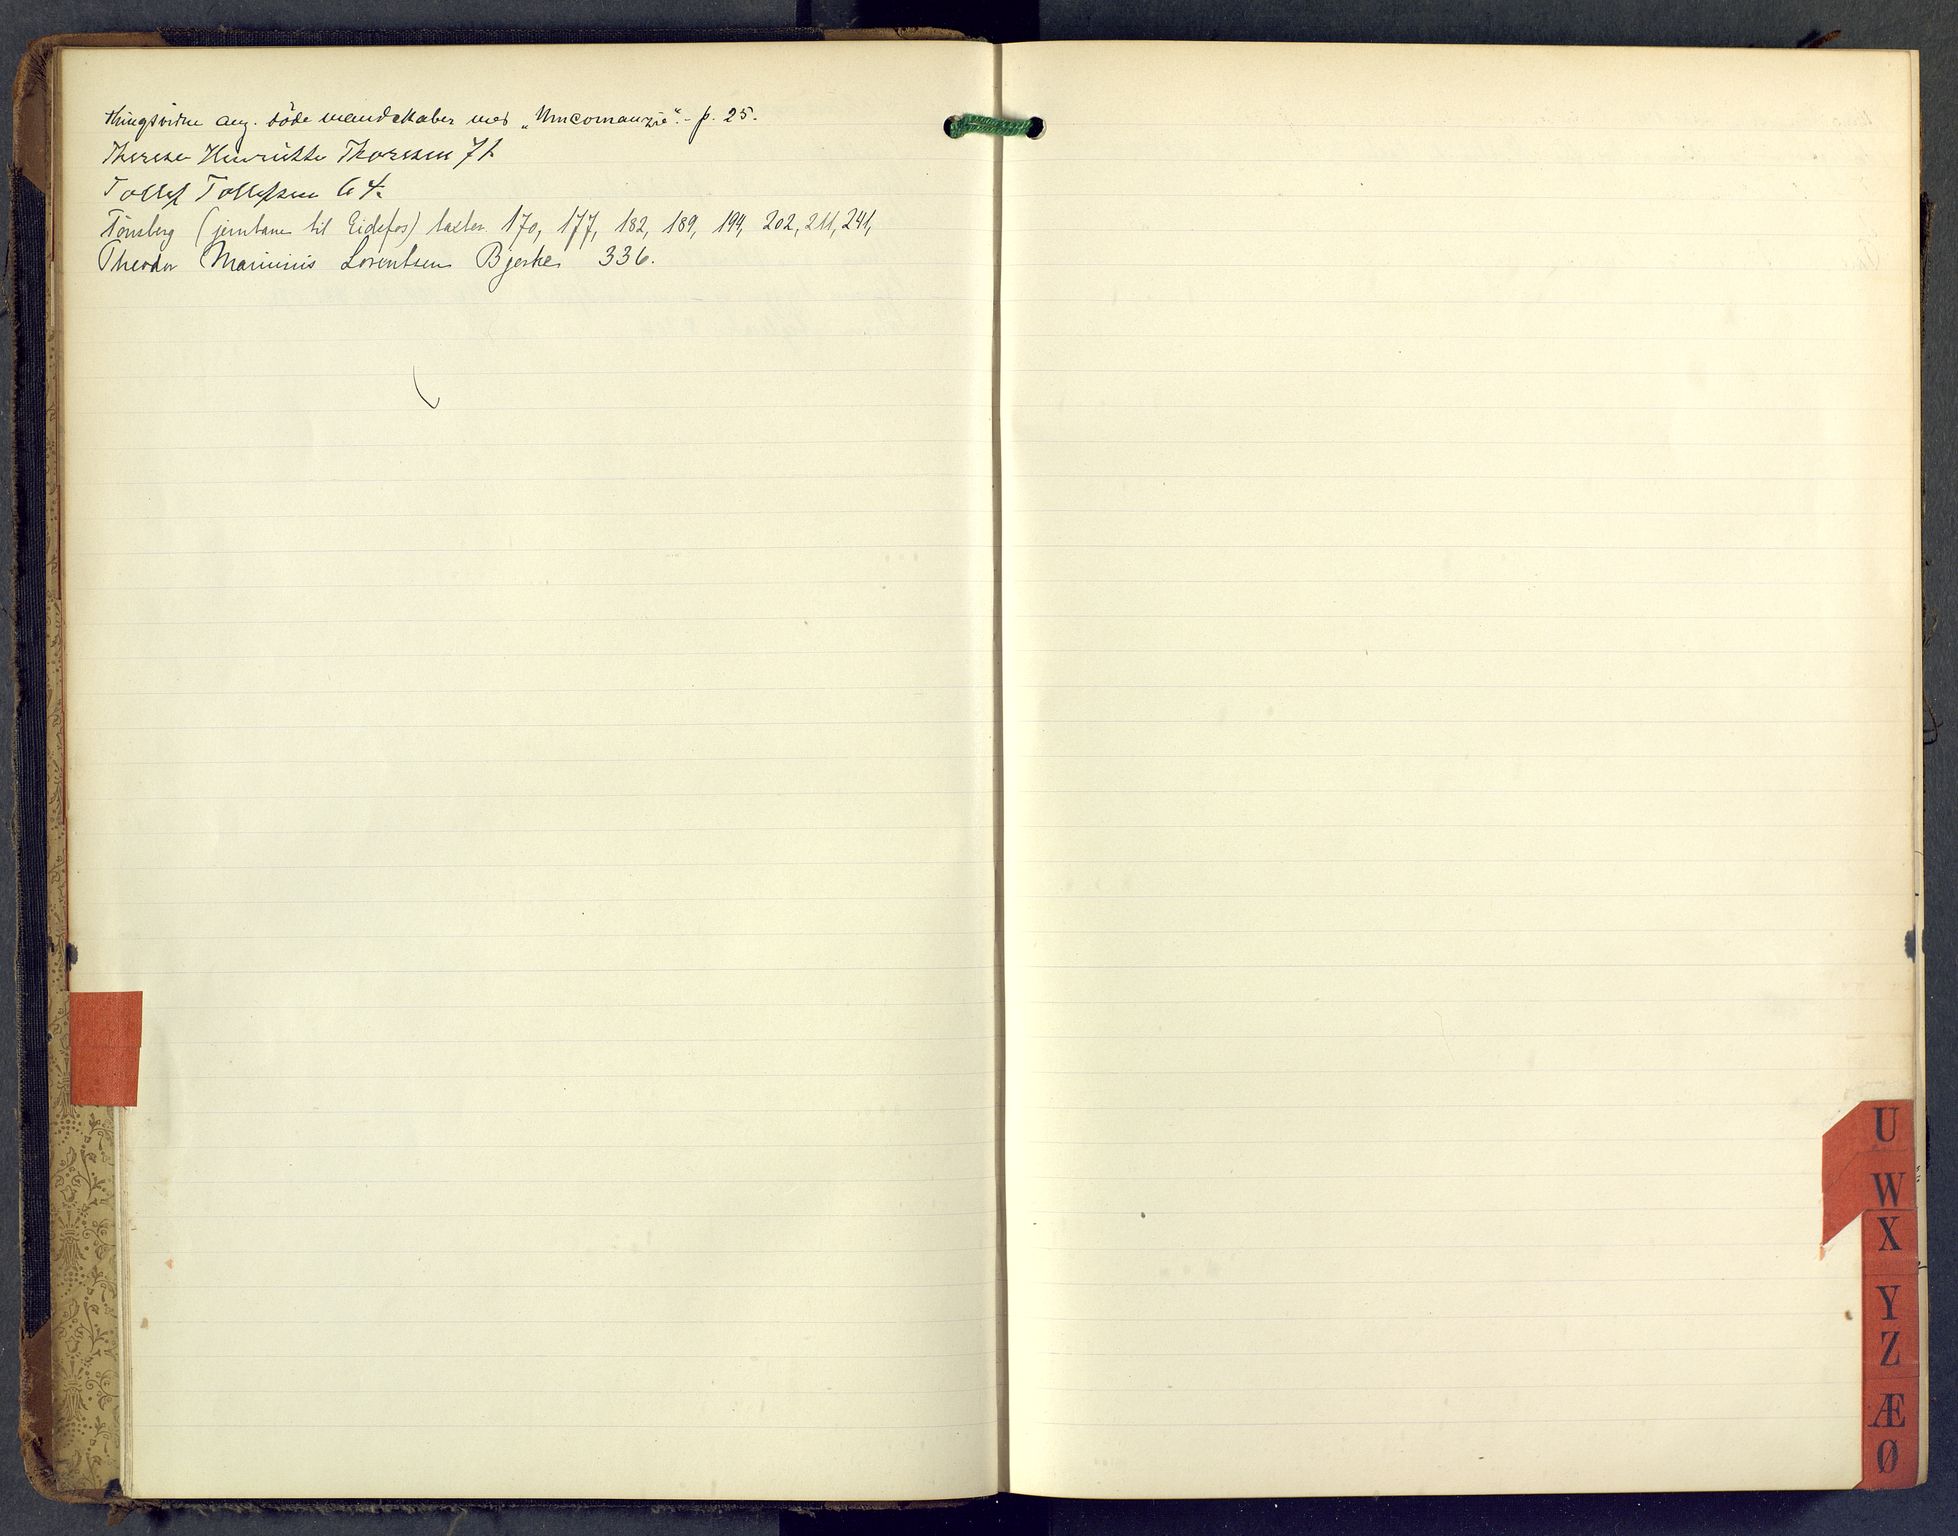 Thingsvidne ang. döde mandskaber med „Umcomanzie“. - p. 25.
Therese Henriette Thoresen 71.
Tollef Tollefsen 64.
Tönsberg (jernbane til Eidsfos) takster 170, 177, 182, 189, 194, 202, 211, 241,
Theodor Marinius Lorentsen Bjerke 336.
U
W
X
Y
Z
Æ
Ø